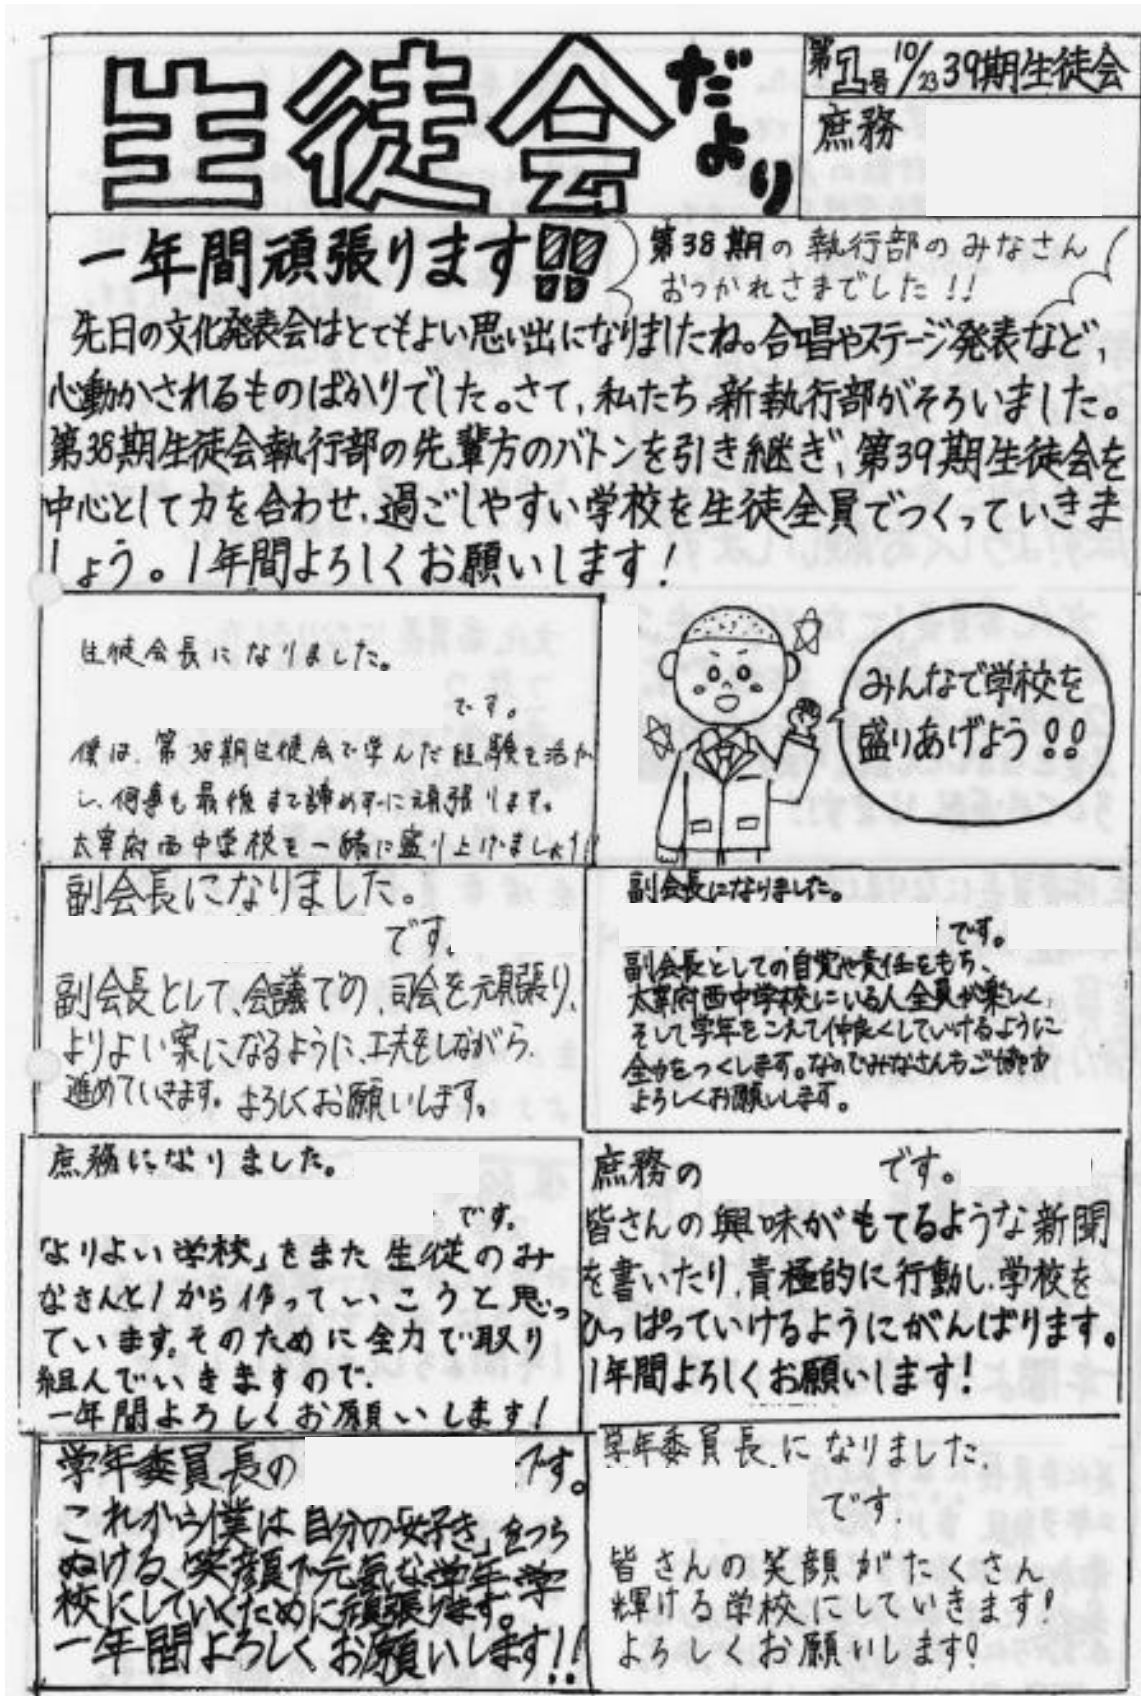 生徒会だより
第1号 10/23 39期生徒会
庶務
一年間頑張ります!!
第38期の執行部のみなさん
おつかれさまでした!!
先日の文化発表会はとてもよい思い出になりましたね。合唱やステージ発表など、
心動かされるものばかりでした。さて、私たち、新執行部がそろいました。
第38期生徒会執行部の先輩方のバトンを引き継ぎ、第39期生徒会を
中心として力を合わせ、過ごしやすい学校を生徒全員でつくっていきま
しょう。1年間よろしくお願いします!
生徒会長になりました。
です。
僕は、第38期生徒会で学んだ経験を活か
し、何事も最後まで諦めずに頑張ります。
太宰府西中学校を一緒に盛り上げましょう!!
みんなで学校を
盛りあげよう!!
副会長になりました。
です。
副会長として、会議での、司会を頑張り、
よりよい案になるように、工夫をしながら、
進めていきます。よろしくお願いします。
副会長になりました。
です。
副会長としての自覚や責任をもち、
太宰府西中学校にいる人全員が楽しく、
そして学年をこえて仲良くしていけるように
全力をつくします。なのでみなさんもご協力
よろしくお願いします。
庶務になりました。
です。
「よりよい学校」をまた生徒のみ
なさんと1から作っていこうと思っ
ています。そのために全力で取り
組んでいきますので、
一年間よろしくお願いします!
庶務の です。
皆さんの興味がもてるような新聞
を書いたり、責極的に行動し、学校を
ひっぱっていけるようにがんばります。
1年間よろしくお願いします!
学年委員長の です。
これから僕は自分の「好き」をつら
ぬける、笑顔で元気な学年、学
校にしていくために頑張ります。
一年間よろしくお願いします!!
学年委員長になりました、
です。
皆さんの笑顔がたくさん
輝ける学校にしていきます!
よろしくお願いします!